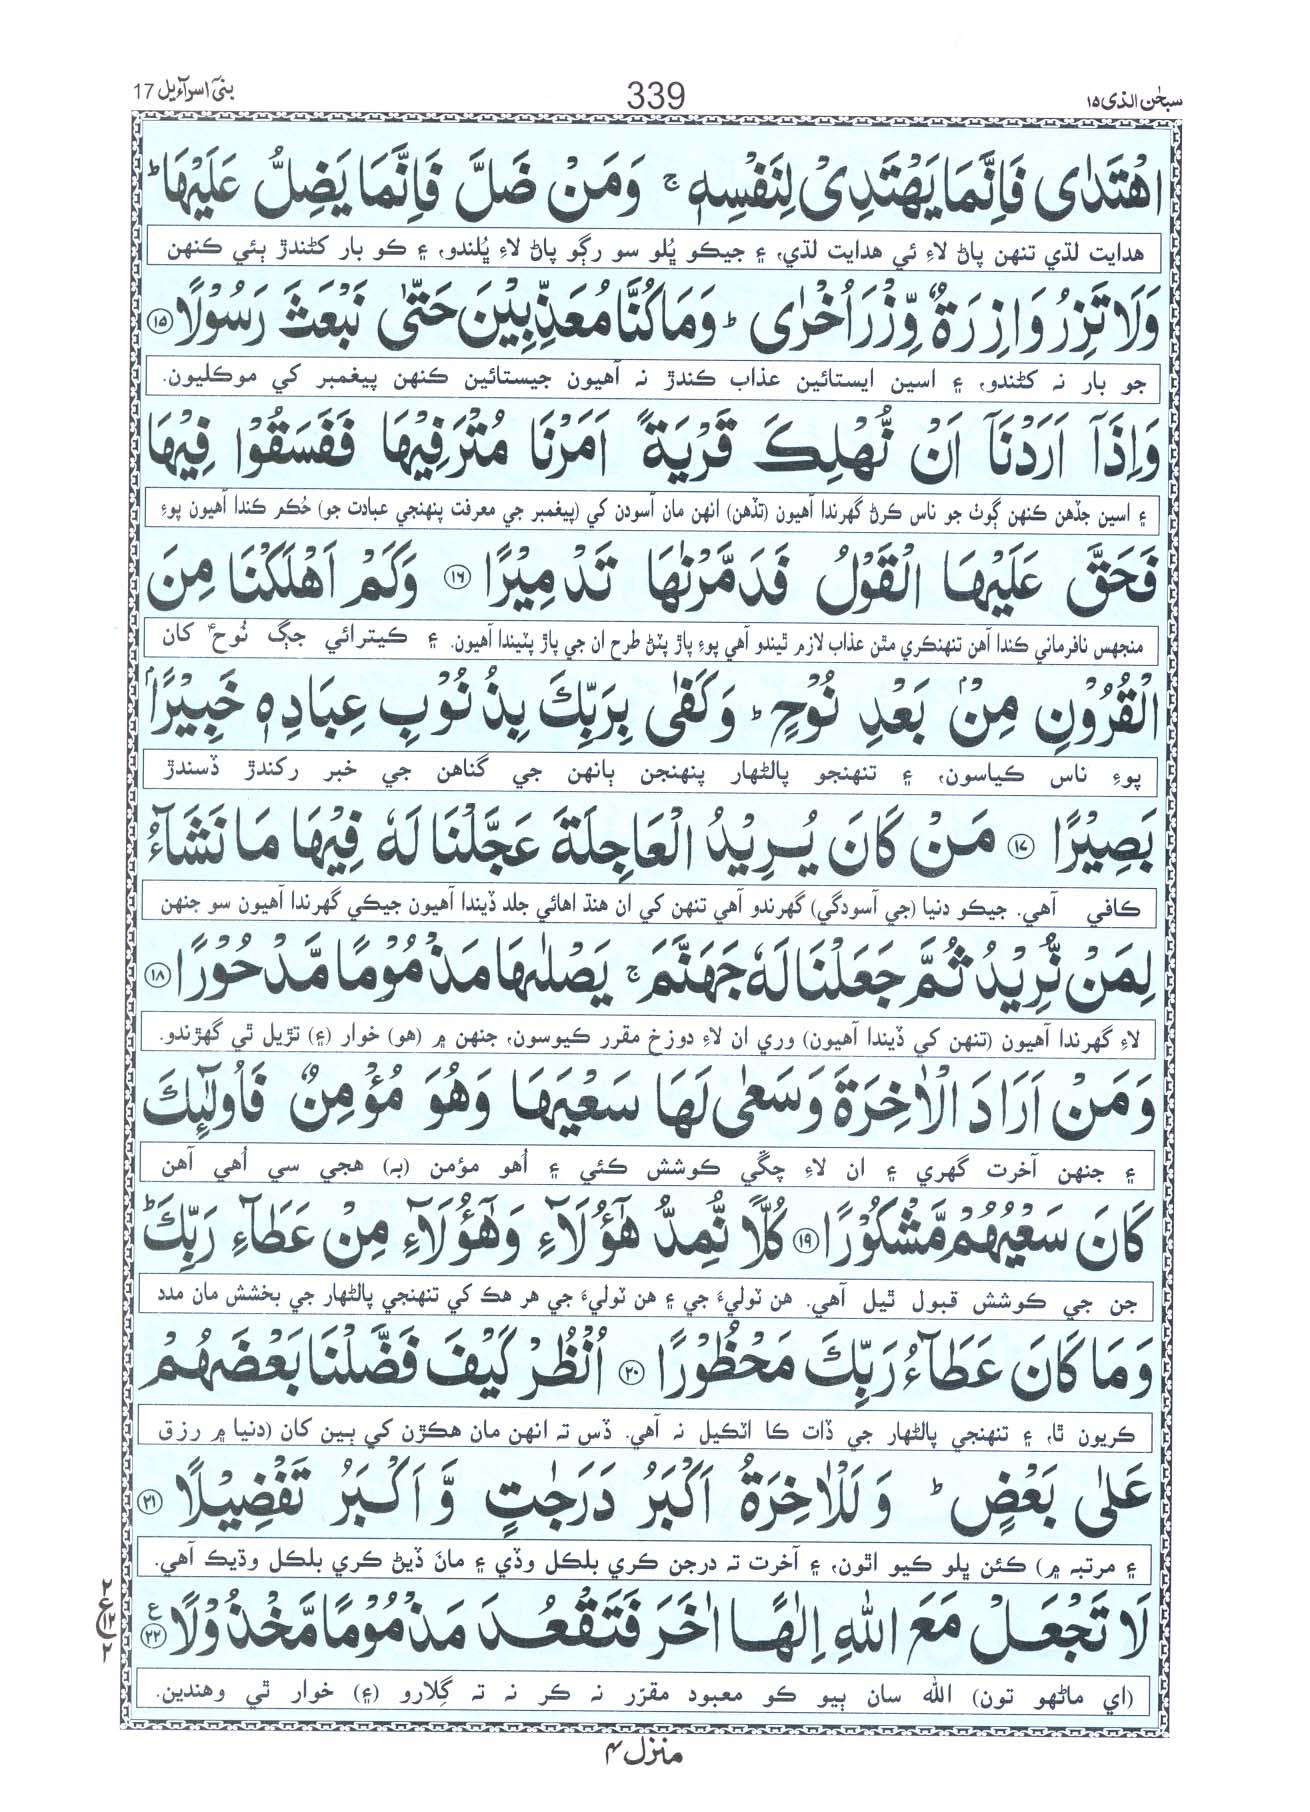 سبحٰن الذی ۱۵
339
بنیٓ اسرآءیل 17
اهْتَدٰى فَاِنَّمَا يَهْتَدِىْ لِنَفْسِهٖ ۚ وَمَنْ ضَلَّ فَاِنَّمَا يَضِلُّ عَلَيْهَا ؕ
هدايت لڌي تنهن پاڻ لاءِ ئي هدايت لڌي، ۽ جيڪو ڀُلو سو رڳو پاڻ لاءِ ڀُلندو، ۽ ڪو بار کڻندڙ ٻئي ڪنهن
وَلَا تَزِرُ وَازِرَةٌ وِّزْرَ اُخْرٰى ؕ وَمَا كُنَّا مُعَذِّبِيْنَ حَتّٰى نَبْعَثَ رَسُوْلًا ۝۱۵
جو بار نه کڻندو، ۽ اسين ايستائين عذاب ڪندڙ نہ آهيون جيستائين ڪنهن پيغمبر کي موڪليون.
وَاِذَآ اَرَدْنَآ اَنْ نُّهْلِكَ قَرْيَةً اَمَرْنَا مُتْرَفِيْهَا فَفَسَقُوْا فِيْهَا
۽ اسين جڏهن ڪنهن ڳوٺ جو ناس ڪرڻ گهرندا آهيون (تڏهن) انهن مان آسودن کي (پيغمبر جي معرفت پنهنجي عبادت جو) حُڪم ڪندا آهيون پوءِ
فَحَقَّ عَلَيْهَا الْقَوْلُ فَدَمَّرْنٰهَا تَدْمِيْرًا ۝۱۶ وَكَمْ اَهْلَكْنَا مِنَ
منجهس نافرماني ڪندا آهن تنهنڪري مٿن عذاب لازم ٿيندو آهي پوءِ پاڙ پٽڻ طرح ان جي پاڙ پٽيندا آهيون. ۽ ڪيترائي جڳ نُوح ؑ کان
الْقُرُوْنِ مِنْۢ بَعْدِ نُوْحٍ ؕ وَكَفٰى بِرَبِّكَ بِذُنُوْبِ عِبَادِهٖ خَبِيْرًۢا
پوءِ ناس ڪياسون، ۽ تنهنجو پالڻهار پنهنجن ٻانهن جي گناهن جي خبر رکندڙ ڏسندڙ
بَصِيْرًا ۝۱۷ مَنْ كَانَ يُرِيْدُ الْعَاجِلَةَ عَجَّلْنَا لَهٗ فِيْهَا مَا نَشَآءُ
ڪافي آهي. جيڪو دنيا (جي آسودگي) گهرندو آهي تنهن کي ان هنڌ اهائي جلد ڏيندا آهيون جيڪي گهرندا آهيون سو جنهن
لِمَنْ نُّرِيْدُ ثُمَّ جَعَلْنَا لَهٗ جَهَنَّمَ ۚ يَصْلٰىهَا مَذْمُوْمًا مَّدْحُوْرًا ۝۱۸
لاءِ گهرندا آهيون (تنهن کي ڏيندا آهيون) وري ان لاءِ دوزخ مقرر ڪيوسون، جنهن ۾ (هو) خوار (۽) تڙيل ٿي گهڙندو.
وَمَنْ اَرَادَ الْاٰخِرَةَ وَسَعٰى لَهَا سَعْيَهَا وَهُوَ مُؤْمِنٌ فَاُولٰٓئِكَ
۽ جنهن آخرت گهري ۽ ان لاءِ چڱي ڪوشش ڪئي ۽ اُهو مؤمن (بہ) هجي سي اُهي آهن
كَانَ سَعْيُهُمْ مَّشْكُوْرًا ۝۱۹ كُلًّا نُّمِدُّ هٰٓؤُلَآءِ وَهٰٓؤُلَآءِ مِنْ عَطَآءِ رَبِّكَ ؕ
جن جي ڪوشش قبول ٿيل آهي. هن ٽوليءَ جي ۽ هن ٽوليءَ جي هر هڪ کي تنهنجي پالڻهار جي بخشش مان مدد
وَمَا كَانَ عَطَآءُ رَبِّكَ مَحْظُوْرًا ۝۲۰ اُنْظُرْ كَيْفَ فَضَّلْنَا بَعْضَهُمْ
ڪريون ٿا، ۽ تنهنجي پالڻهار جي ڏات ڪا اٽڪيل نہ آهي. ڏس تہ انهن مان هڪڙن کي ٻين کان (دنيا ۾ رزق
عَلٰى بَعْضٍ ؕ وَلَلْاٰخِرَةُ اَكْبَرُ دَرَجٰتٍ وَّاَكْبَرُ تَفْضِيْلًا ۝۲۱
۽ مرتبہ ۾) ڪئن ڀلو ڪيو اٿون، ۽ آخرت تہ درجن ڪري بلڪل وڏي ۽ مان ڏيڻ ڪري بلڪل وڌيڪ آهي.
لَا تَجْعَلْ مَعَ اللّٰهِ اِلٰهًا اٰخَرَ فَتَقْعُدَ مَذْمُوْمًا مَّخْذُوْلًا ۝۲۲ ع
۲ ع ۱۲ ۲
(اي ماڻهو تون) الله سان ٻيو ڪو معبود مقرّر نہ ڪر نہ تہ گِلارو (۽) خوار ٿي وهندين.
منزل ۴